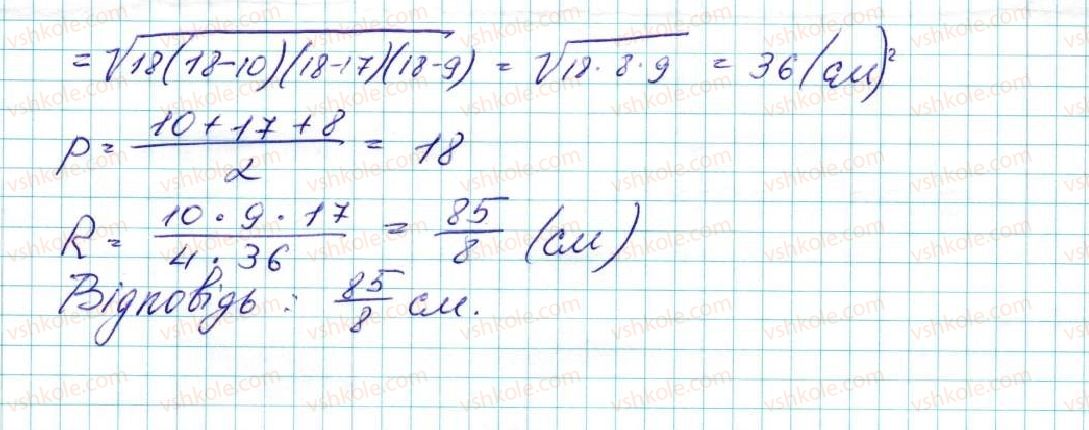 = √18(18-10)(18-17)(18-9) = √18·8·9 = 36 (см)²
p = (10+17+8)/2 = 18
R = (10·9·17)/(4·36) = 85/8 (см)
Відповідь: 85/8 см.
vshkole.com